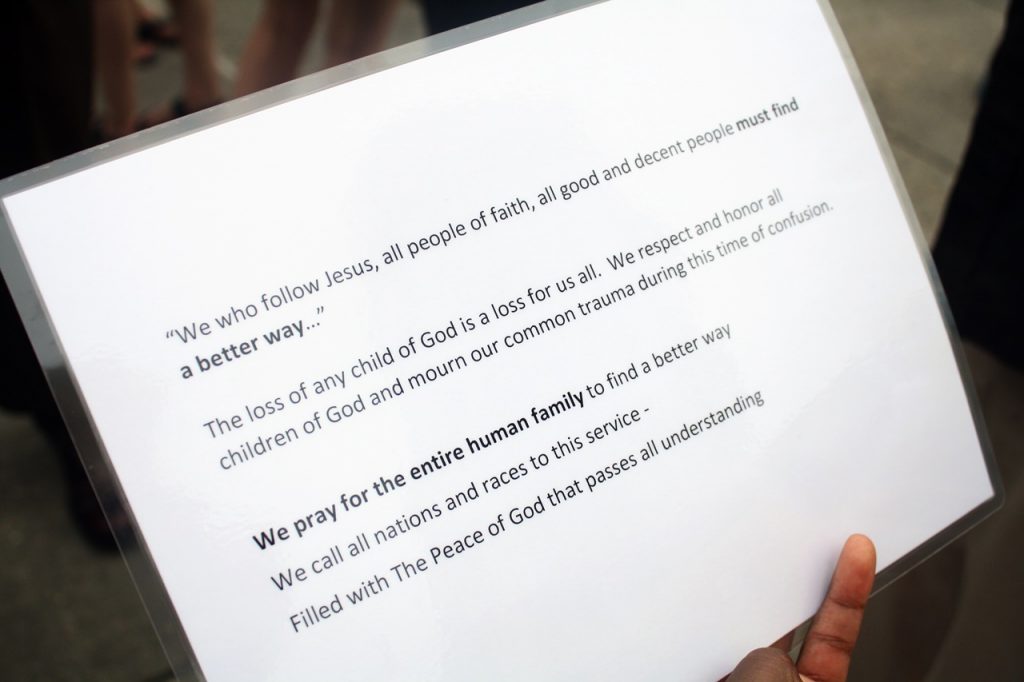 “We who follow Jesus, all people of faith, all good and decent people must find
a better way...”
The loss of any child of God is a loss for us all. We respect and honor all
children of God and mourn our common trauma during this time of confusion.
We pray for the entire human family to find a better way
We call all nations and races to this service -
Filled with The Peace of God that passes all understanding